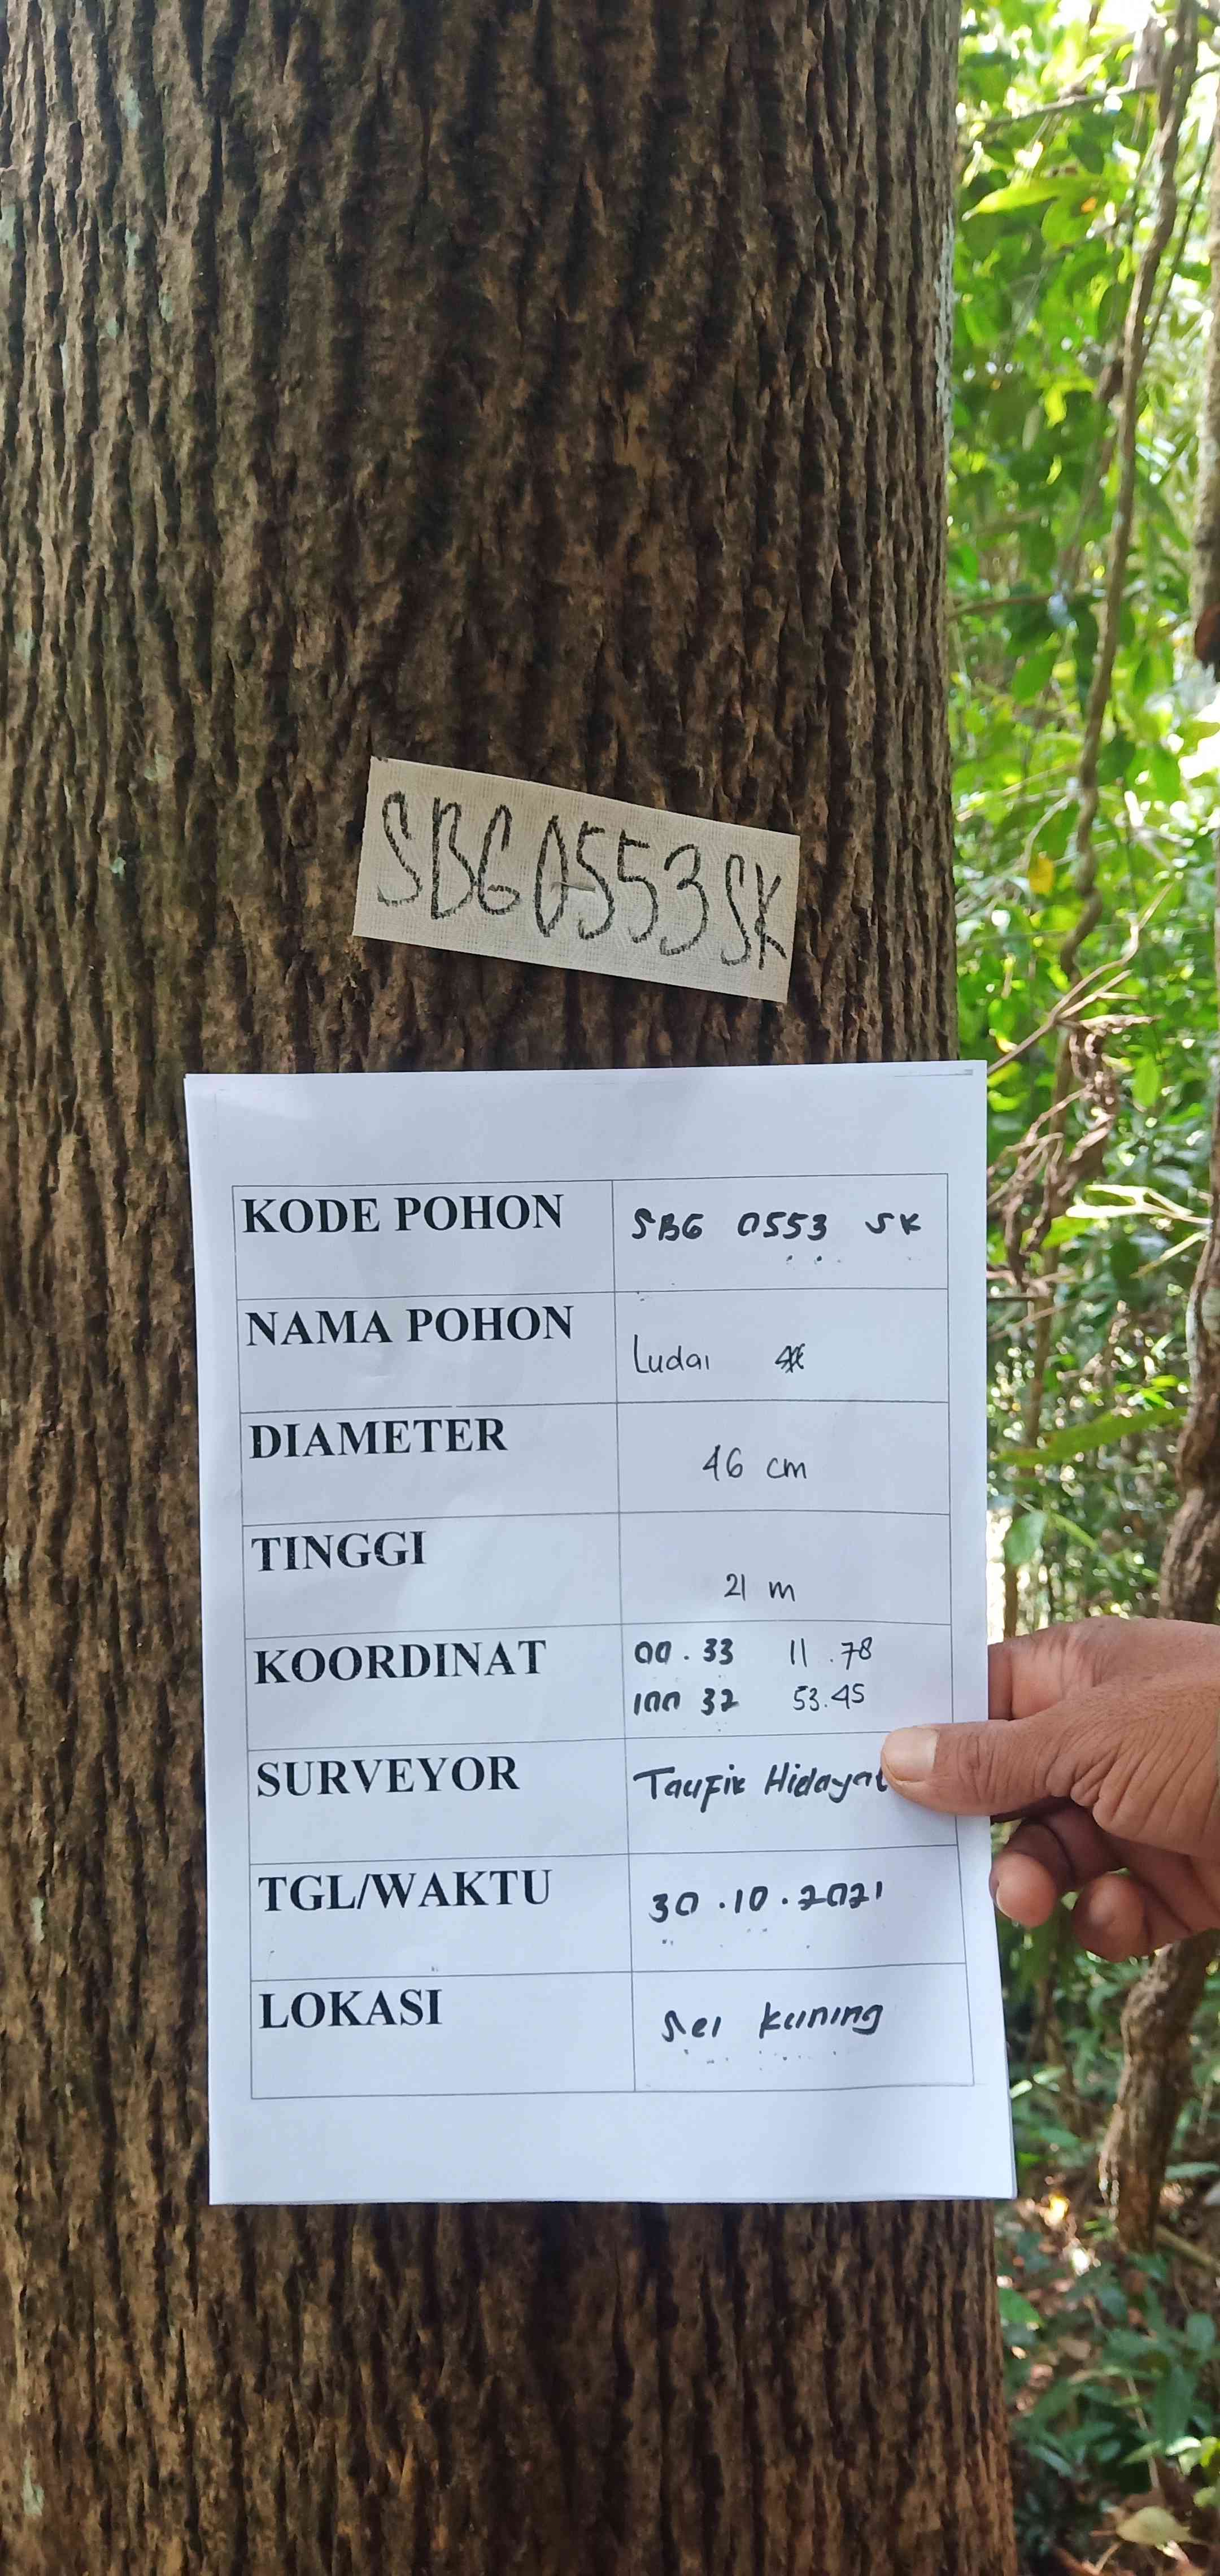 SBG0553SK
KODE POHON SBG 0553 SK
NAMA POHON Ludai
DIAMETER 46 cm
TINGGI 21 m
KOORDINAT 00.33 11.78
100 32 53.45
SURVEYOR Taufik Hidayat
TGL/WAKTU 30.10.2021
LOKASI Sei kuning